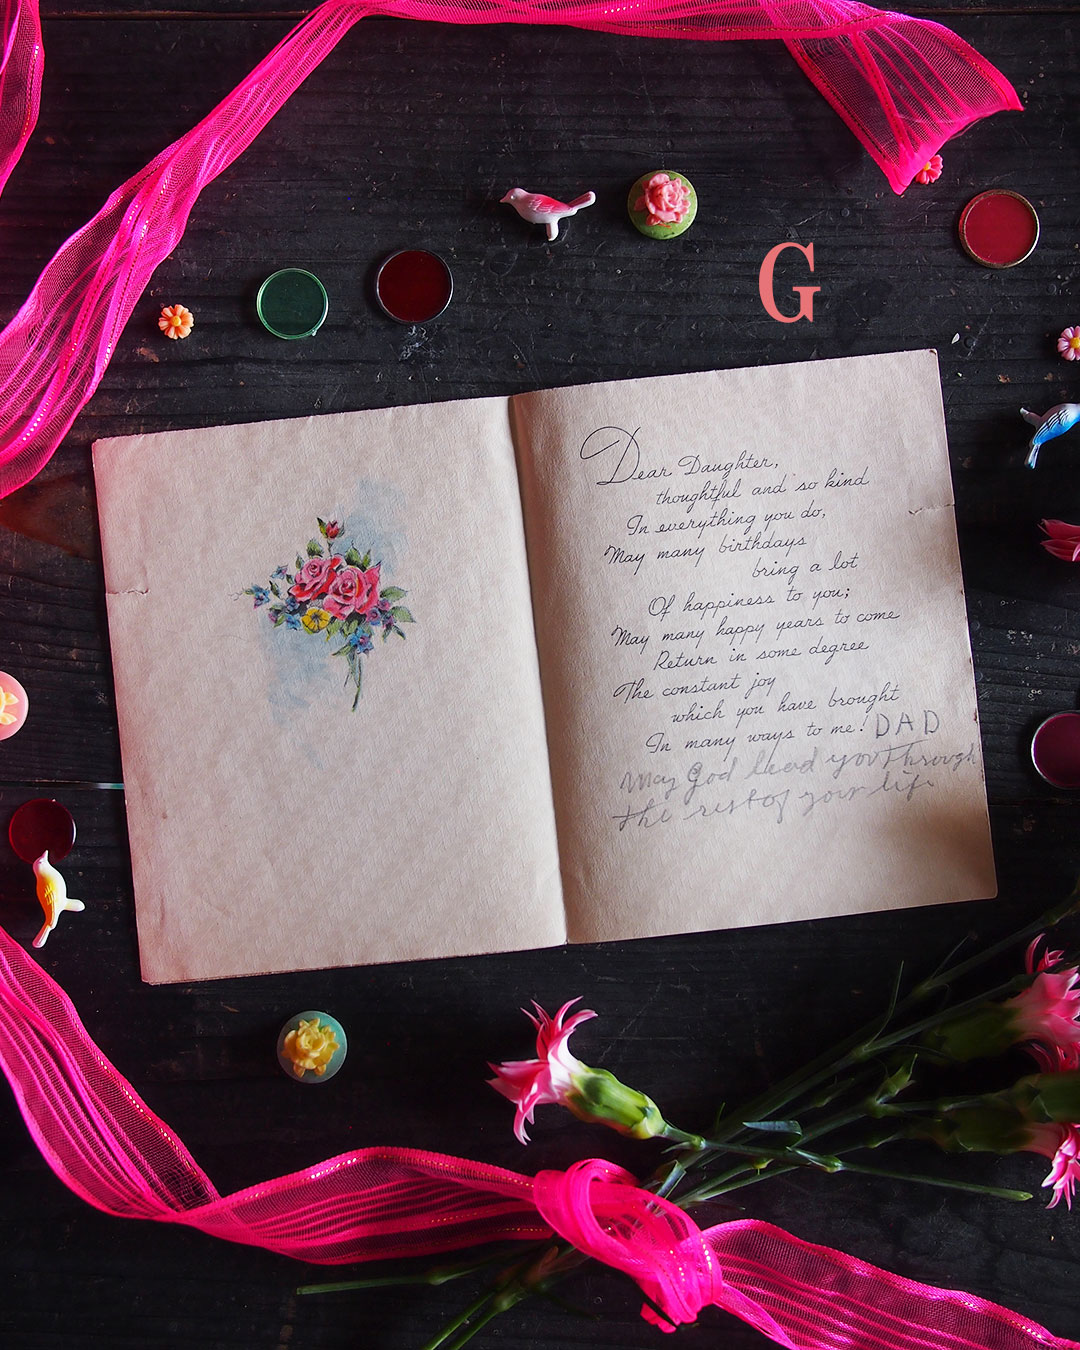 G
Dear Daughter,
thoughtful and so kind
In everything you do,
May many birthdays
bring a lot
Of happiness to you;
May many happy years to come
Return in some degree
The constant joy
which you have brought
In many ways to me! DAD
May God lead you through
the rest of your life